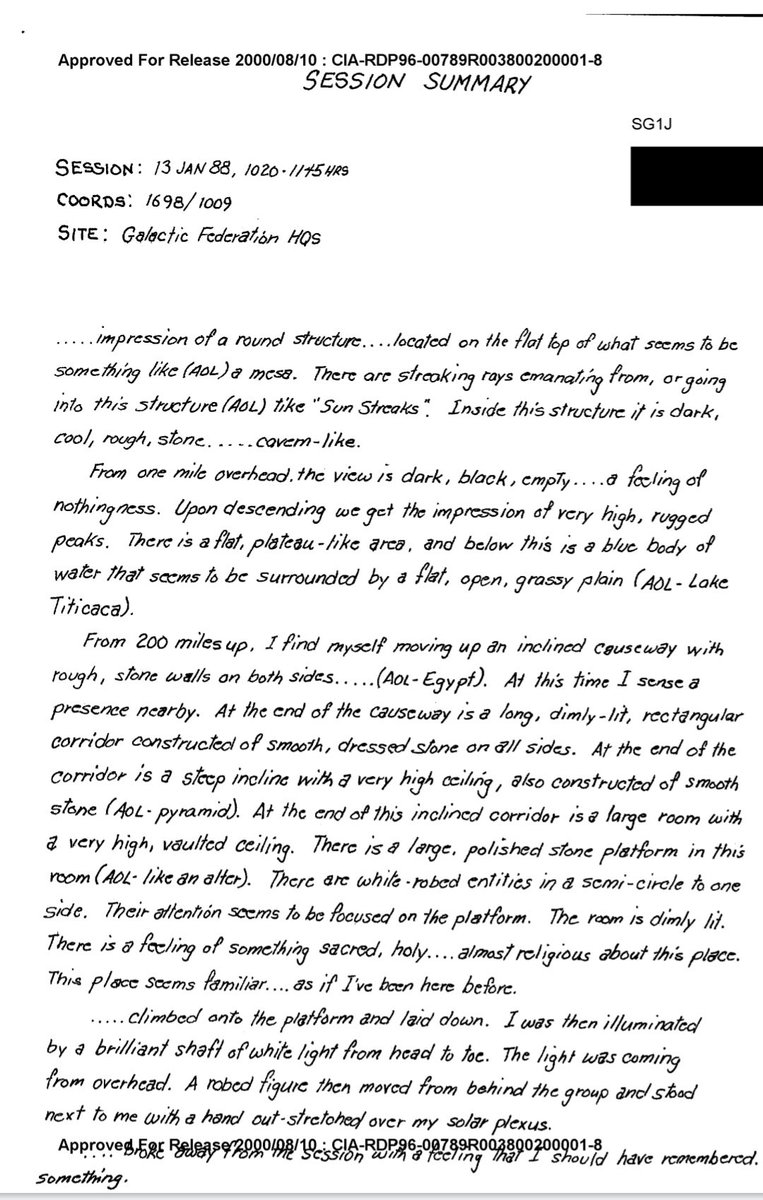 Approved For Release 2000/08/10 : CIA-RDP96-00789R003800200001-8
SESSION SUMMARY
SG1J
SESSION: 13 JAN 88, 1020-1145 HRS
COORDS: 1698/1009
SITE: Galactic Federation HQS
.....impression of a round structure....located on the flat top of what seems to be
something like (AOL) a mesa. There are streaking rays emanating from, or going
into this structure (AOL) like "Sun Streaks". Inside this structure it is dark,
cool, rough, stone.....cavern-like.
From one mile overhead, the view is dark, black, empty....a feeling of
nothingness. Upon descending we get the impression of very high, rugged
peaks. There is a flat, plateau-like area, and below this is a blue body of
water that seems to be surrounded by a flat, open, grassy plain (AOL- Lake
Titicaca).
From 200 miles up, I find myself moving up an inclined causeway with
rough, stone walls on both sides.....(AOL-Egypt). At this time I sense a
presence nearby. At the end of the causeway is a long, dimly-lit, rectangular
corridor constructed of smooth, dressed stone on all sides. At the end of the
corridor is a steep incline with a very high ceiling, also constructed of smooth
stone (AOL-pyramid). At the end of this inclined corridor is a large room with
a very high, vaulted ceiling. There is a large, polished stone platform in this
room (AOL- like an alter). There are white-robed entities in a semi-circle to one
side. Their attention seems to be focused on the platform. The room is dimly lit.
There is a feeling of something sacred, holy....almost religious about this place.
This place seems familiar....as if I've been here before.
.....climbed onto the platform and laid down. I was then illuminated
by a brilliant shaft of white light from head to toe. The light was coming
from overhead. A robed figure then moved from behind the group and stood
next to me with a hand out-stretched over my solar plexus.
Approved For Release 2000/08/10 : CIA-RDP96-00789R003800200001-8
.... broke away from the session with a feeling that I should have remembered.
something.